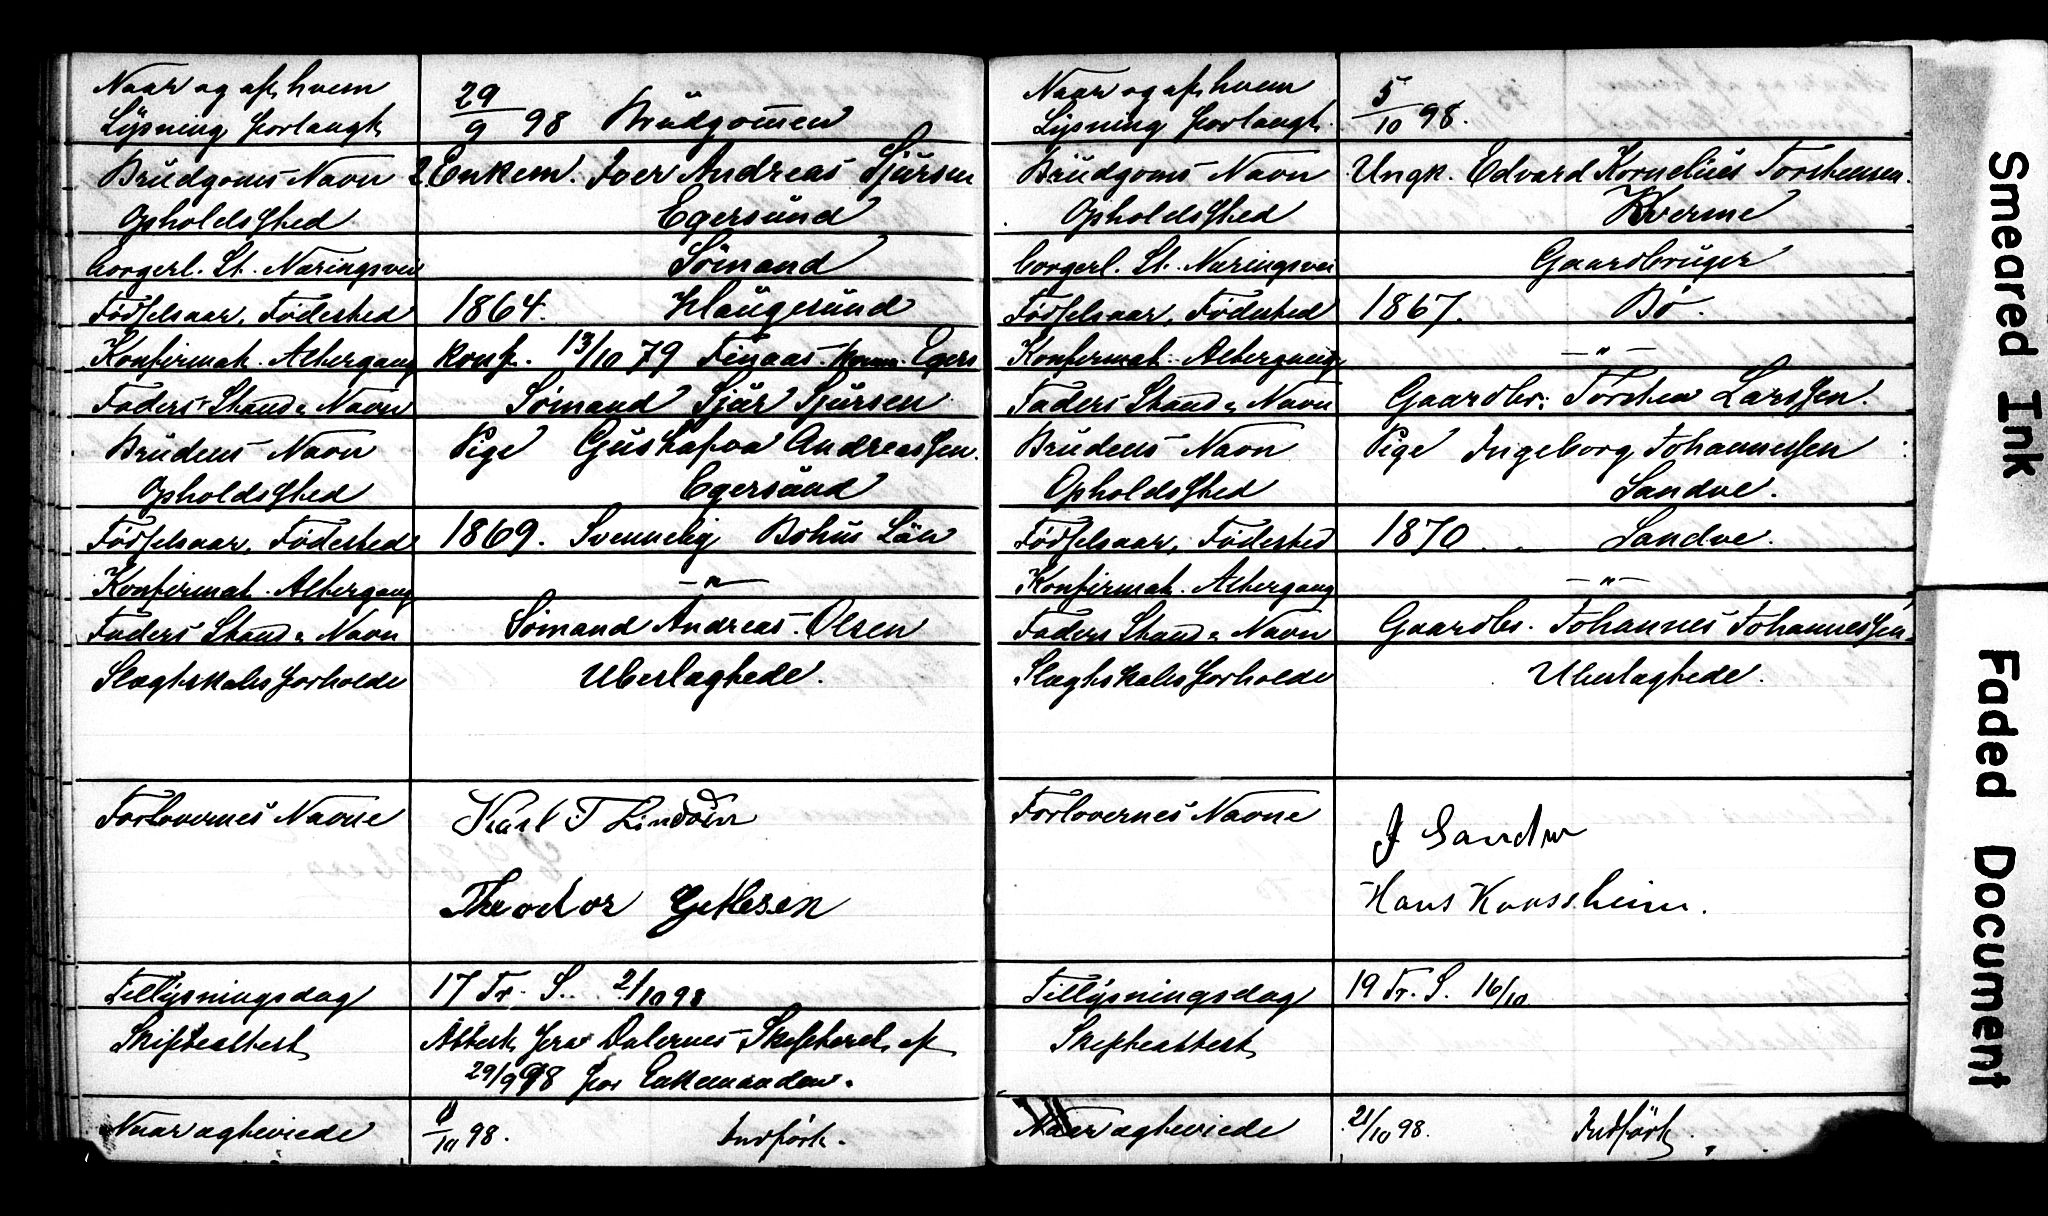 Naar og af hvem
Lysning forlangt 29/9 98 Brudgommen
Brudgoms Navn 2 Enkem. Iver Andreas Sjursen
Opholdssted Egersund
borgerl. St. Næringsvei Sömand
Födselsaar, Födested 1864. Haugesund
Konfirmat. Altergang Konf. 13/10 79 Egers
Faders Stand & Navn Sömand Sjur Sjursen
Brudens Navn Pige Gustafva Andreassen.
Opholdssted Egersund
Födselsaar, Födested 1869. Svenneby Bohus Län
Konfirmat. Altergang —"—
Faders Stand & Navn Sömand Andreas Olsen
Slægtskabsforholde Ubeslægtede.
Forlovernes Navne Karl T
Theodor
Tillysningsdag 17 Tr. S. 2/10 98
Skifteattest Attest fra Dalernes Skifteret af
29/9 98 for Enkemanden.
Naar ægteviede /10 98. Indfört.
Naar og af hvem
Lysning forlangt. 5/10 98.
Brudgoms Navn Ungk. Edvard Kornelius Torstensen.
Opholdssted
borgerl. St. Næringsvei Gaardbruger
Födselsaar, Födested 1867. Bö.
Konfirmat. Altergang —"—
Faders Stand & Navn Gaardbr. Torsten Larssen.
Brudens Navn Pige Ingeborg Johannessen
Opholdssted Sandve.
Födselsaar, Födested 1870 Sandve.
Konfirmat. Altergang —"—
Faders Stand & Navn Gaardbr. Johannes Johannessen
Slægtskabsforholde Ubeslægtede.
Forlovernes Navne J Sandve
Hans
Tillysningsdag 19 Tr. S. 16/10
Skifteattest
Naar ægteviede 21/10 98. Indfört.
Smeared Ink
Faded Document